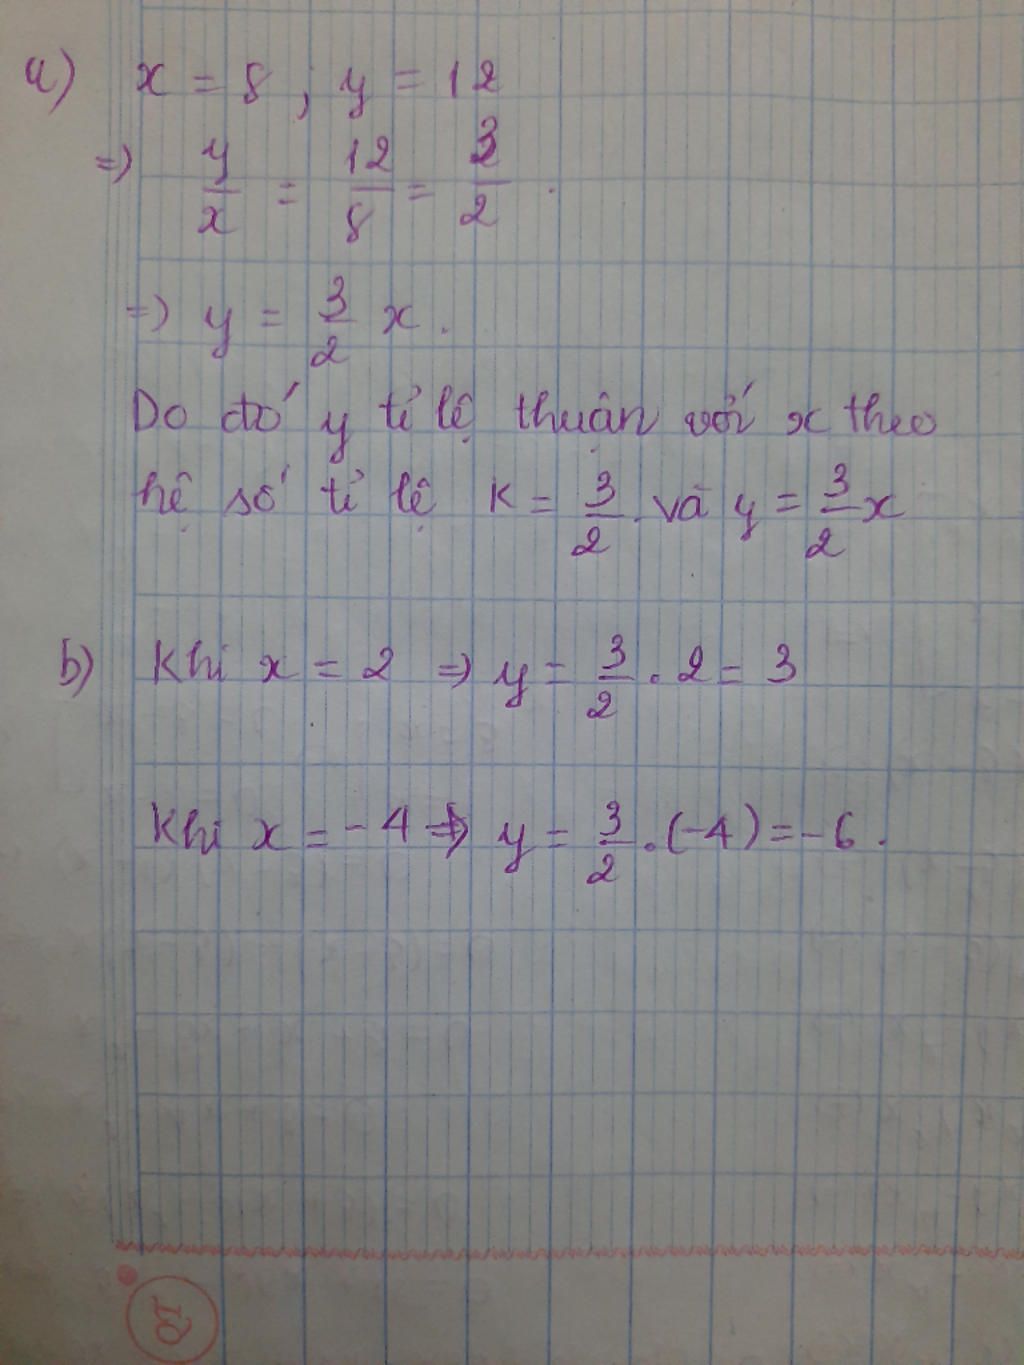 a) x = 8 ; y = 12
=) y/x = 12/8 = 3/2 .
=) y = 3/2 x .
Do đó y tỉ lệ thuận với x theo
hệ số tỉ lệ K = 3/2 . và y = 3/2 x
b) Khi x = 2 => y = 3/2 . 2 = 3
Khi x = - 4 => y = 3/2 . (-4) = - 6 .